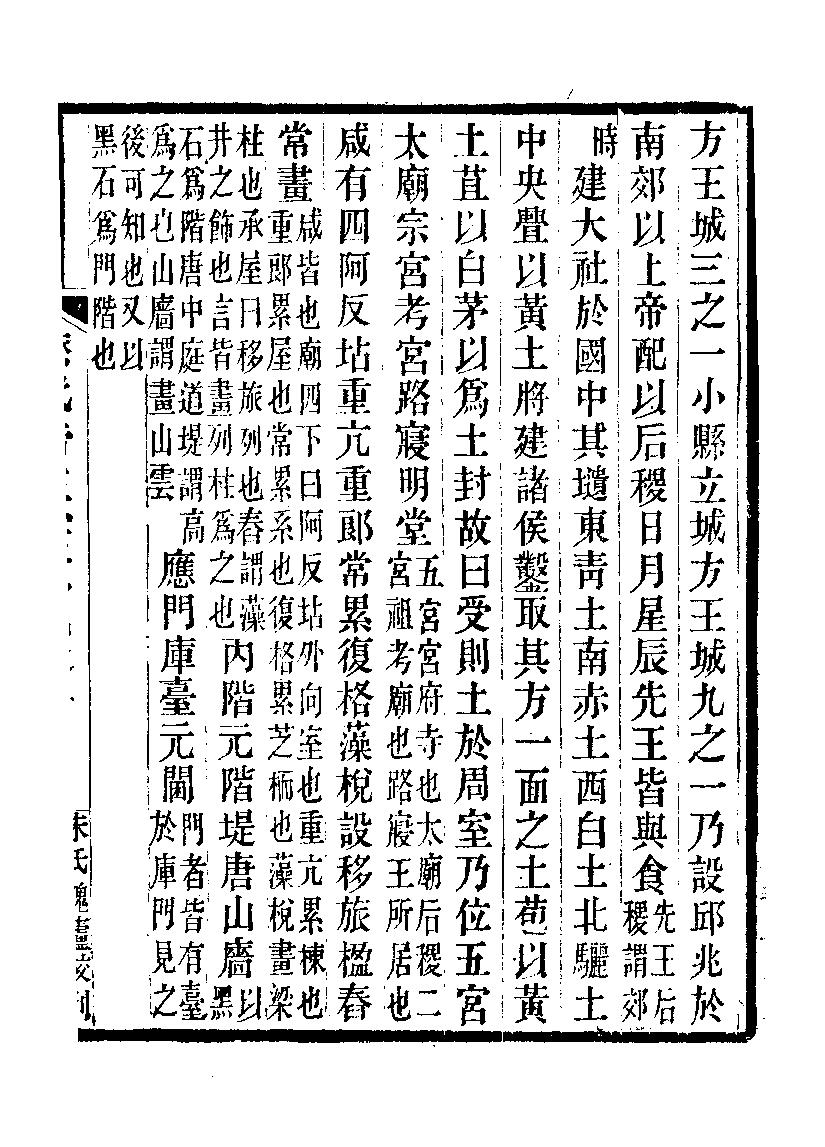 方王城三之一小縣立城方王城九之一乃設邱兆於
南郊以上帝配以后稷日月星辰先王皆與食
先王后
稷謂郊
時
建大社於國中其壝東靑土南赤土西白土北驪土
中央疊以黃土將建諸侯鑿取其方一面之土苞以黃
土苴以白茅以爲土封故曰受則土於周室乃位五宮
太廟宗宮考宮路寢明堂
五宮宮府寺也太廟后稷二
宮祖考廟也路寢王所居也
咸有四阿反坫重亢重郞常累復格藻梲設移旅楹舂
常畫
咸皆也廟四下曰阿反坫外向室也重亢累棟也
重郞累屋也常累系也復格累芝栭也藻梲畫梁
柱也承屋曰移旅列也舂謂藻
井之飾也言皆畫列柱爲之也
內階元階堤唐山廧
以
黑
石爲階唐中庭道堤謂高
爲之也山廧謂畫山雲
應門庫臺元閫
門者皆有臺
於庫門見之
後可知也又以
黑石爲門階也
朱氏槐廬校刊